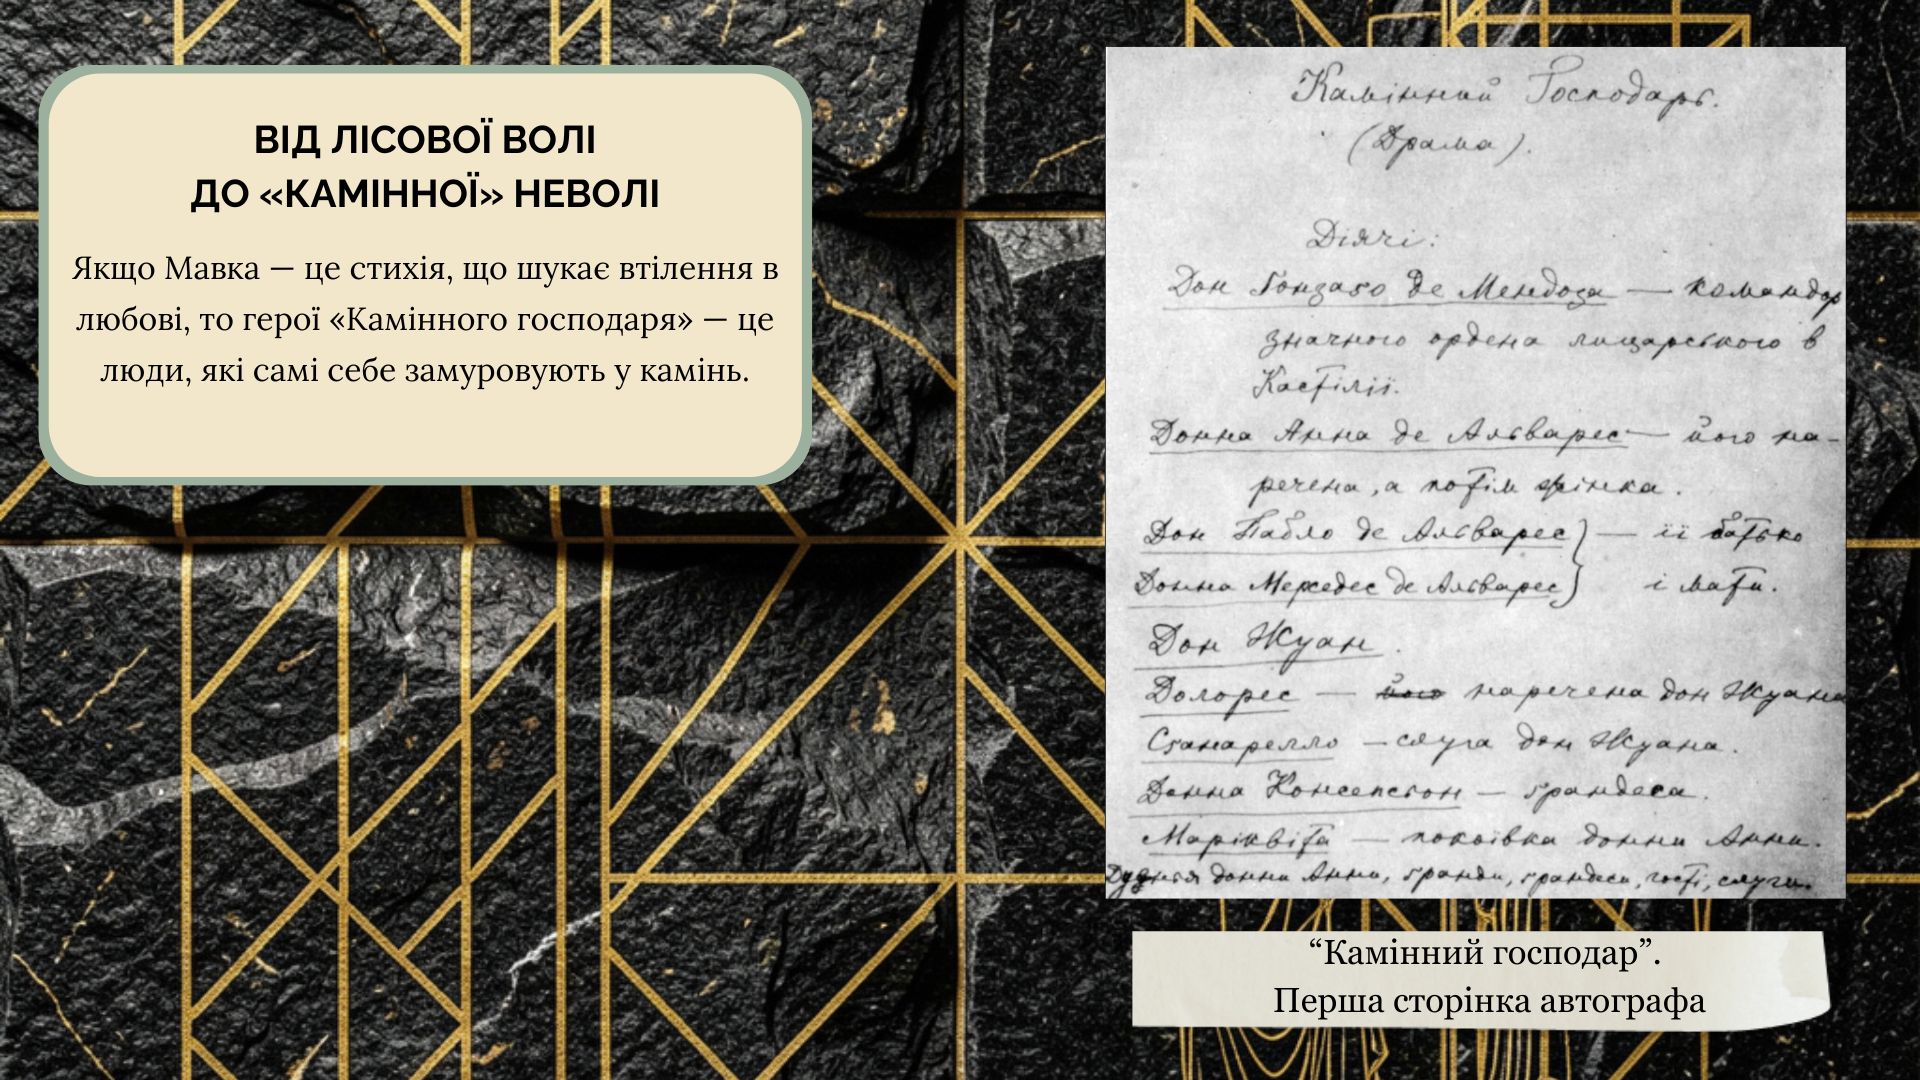 ВІД ЛІСОВОЇ ВОЛІ
ДО «КАМІННОЇ» НЕВОЛІ
Якщо Мавка — це стихія, що шукає втілення в
любові, то герої «Камінного господаря» — це
люди, які самі себе замуровують у камінь.
Камінний Господарь.
(Драма).
Діячі:
Дон Ґонзаґо де Мендоза — командор
значного ордена лицарського в
Кастілії.
Донна Анна де Альварес — його на-
речена, а потім жінка.
Дон Пабло де Альварес } — її батько
Донна Мерседес де Альварес } і мати.
Дон Жуан.
Долорес — його наречена дон Жуана
Сганарелло — слуга дон Жуана.
Донна Консепсьон — грандеса.
Маріквіта — покоївка донни Анни.
Дуэнья донни Анни, гранди, грандеси, гості, слуги.
“Камінний господар”.
Перша сторінка автографа